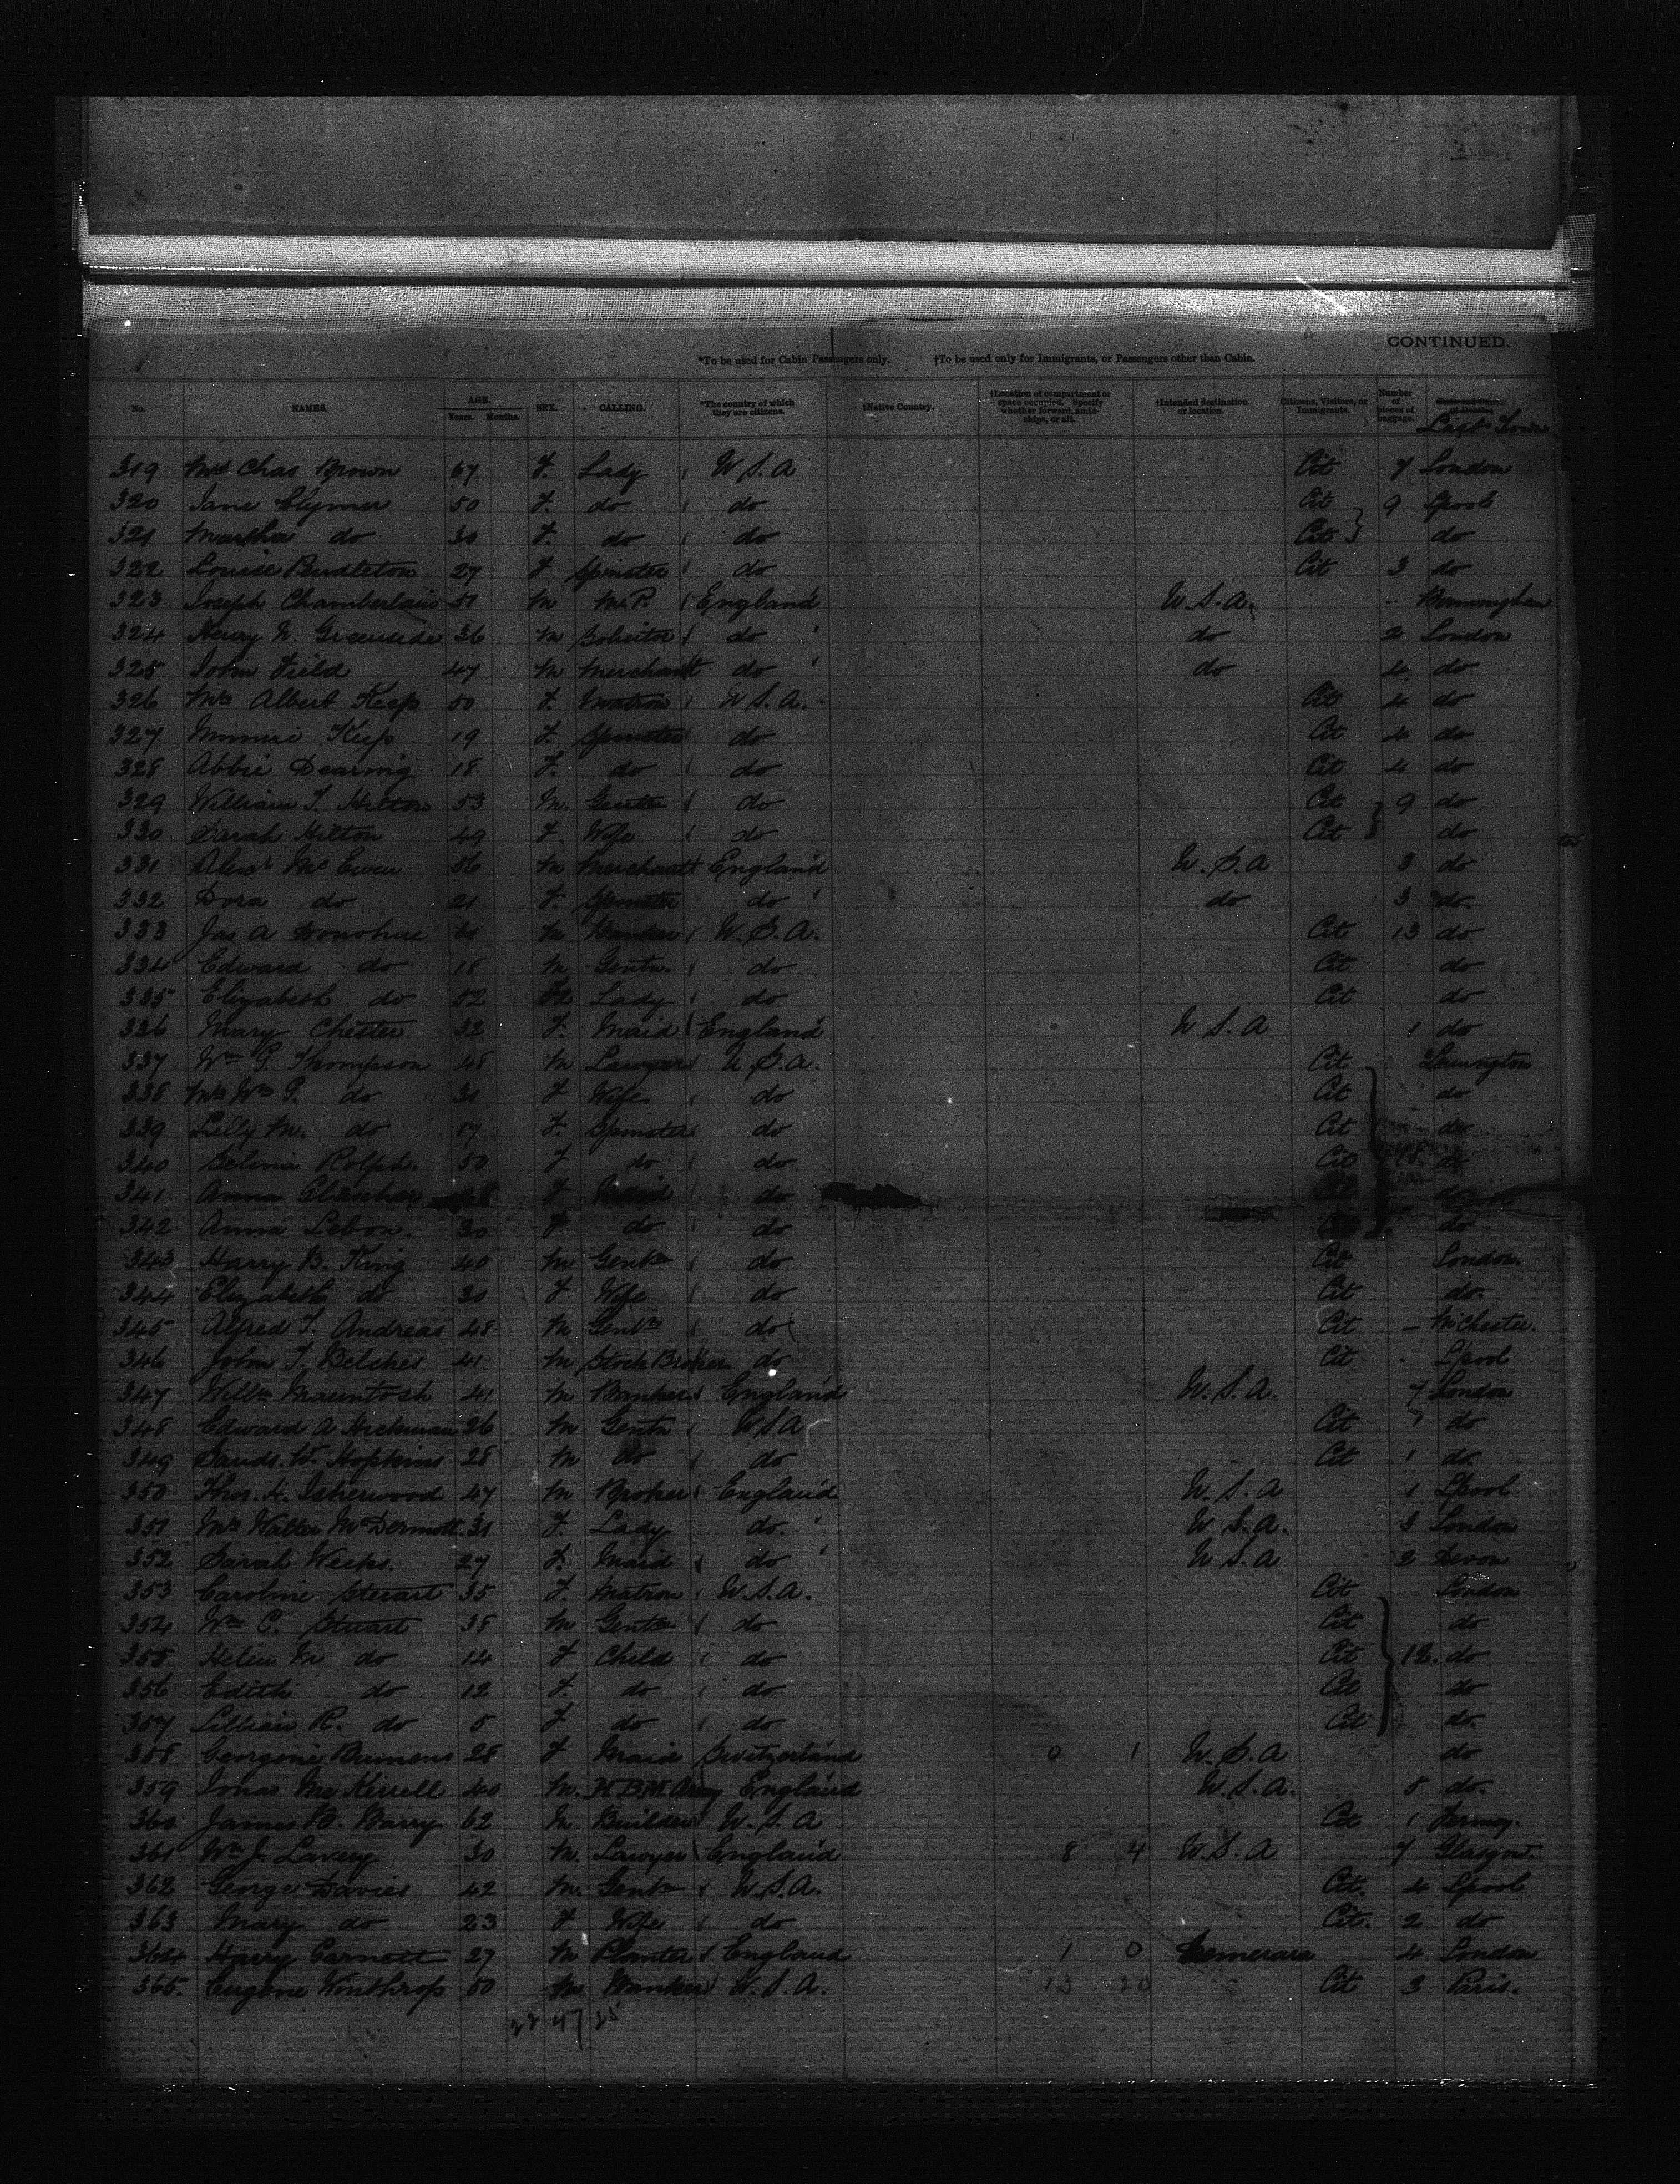 CONTINUED.
*To be used for Cabin Passengers only. †To be used only for Immigrants, or Passengers other than Cabin.
No. NAMES. AGE. Years. Months. SEX. CALLING. *The country of which they are citizens. †Native Country. †Location of compartment or space occupied. Specify whether forward, amidships, or aft. †Intended destination or location. Citizens, Visitors, or Immigrants. Number of pieces of baggage. Last Town
319 Mrs Chas Brown 67 F. Lady U.S.A Cit 7 London
320 Jane Clymer 50 F. do do Cit 9 Lpool
321 Martha do 30 F. do do Cit do
322 Louise Pendleton 27 F Spinster do Cit 3 do
323 Joseph Chamberlain 51 M M.P. England U.S.A. Birmingham
324 Henry N. Greenside 36 M Solicitor do do 2 London
325 John Field 47 M Merchant do do 4 do
326 Mrs Albert Keep 50 F. Matron U.S.A. Cit 4 do
327 Keep 19 F. Spinster do Cit 4 do
328 Abbie Dearing 18 F. do do Cit 4 do
329 William T. Hilton 53 M. Gentn do Cit 9 do
330 Sarah Hilton 49 F Wife do Cit do
331 Alexr McEwen 56 M Merchant England U.S.A 3 do
332 Dora do 21 F. Spinster do do 3 do.
333 Jas A Donohue M Banker U.S.A. Cit 13 do
334 Edward do 18 M Gentn. do Cit do
335 Elizabeth do 52 Lady do Cit do
336 Mary Chester 32 F. Maid England U.S.A 1 do
337 Wm G. Thompson 48 M Lawyer U.S.A. Cit Leamington
338 Mrs Wm G. do 31 F Wife do Cit do
339 Lilly M. do 17 F. Spinster do Cit do
340 Selina Rolph. 50 F do do Cit do
341 Anna F Maid do Cit do
342 Anna Lebon. 30 F do do Cit do
343 Harry B. King 40 M Gentn do Cit London.
344 Elizabeth do 30 F Wife do Cit do.
345 Alfred T. Andreas 48 M Gentn do Cit – Mchester.
346 John T. Belcher 41 M Stock Broker do Cit Lpool
347 Willm Macintosh 41 M Banker England U.S.A. 7 London
348 Edward A. Hickman 26 M Gentn U.S.A Cit 1 do
349 Sands. W. Hopkins 28 M do do Cit 1 do.
350 Thos. H. Isherwood 47 M Broker England U.S.A 1 Lpool
351 Mrs Walter McDermott. 31 F. Lady do. U.S.A. 3 London
352 Sarah Weeks. 27 F. Maid do U.S.A 2 Devon
353 Caroline Stuart 35 F. Matron U.S.A. Cit London
354 Wm C. Stuart 38 M Gentn do Cit do
355 Helen M do 14 F Child do Cit 12. do
356 Edith do 12 F. do do Cit do
357 Lillian R. do 5 F do do Cit do.
358 Georgine 28 F Maid Switzerland 0 1 U.S.A do
359 Jonas McKerrell 40 M. H.B.M. Army England U.S.A. 5 do.
360 James B. Barry 62 M Builder U.S.A Cit 1 Fermoy.
361 Wm J. Lavery 30 M. Lawyer England 8 4 U.S.A 7 Glasgow.
362 George Davies 42 M. Gentn U.S.A. Cit. 4 Lpool
363 Mary do 23 F Wife do Cit. 2 do
364 Harry Garnett 27 M Planter England 1 0 Demerara 4 London
365. Eugene Winthrop 50 M Banker U.S.A. 13 20 Cit 3 Paris.
22 47 25